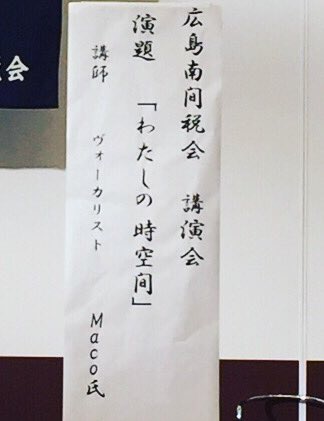 広島南間税会　講演会
演題　「わたしの時空間」
講師　ヴォーカリスト　Maco氏
会